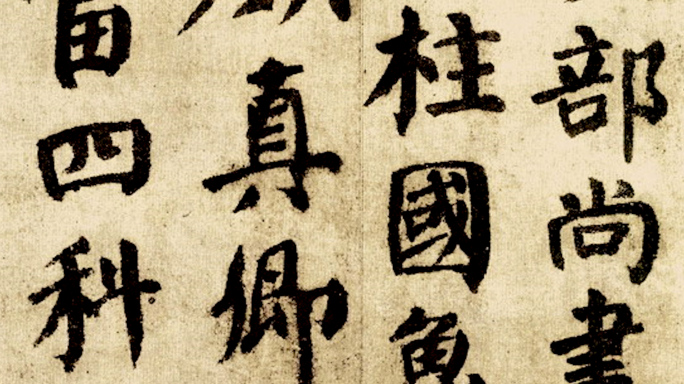 部尚書
柱國
真卿
四科